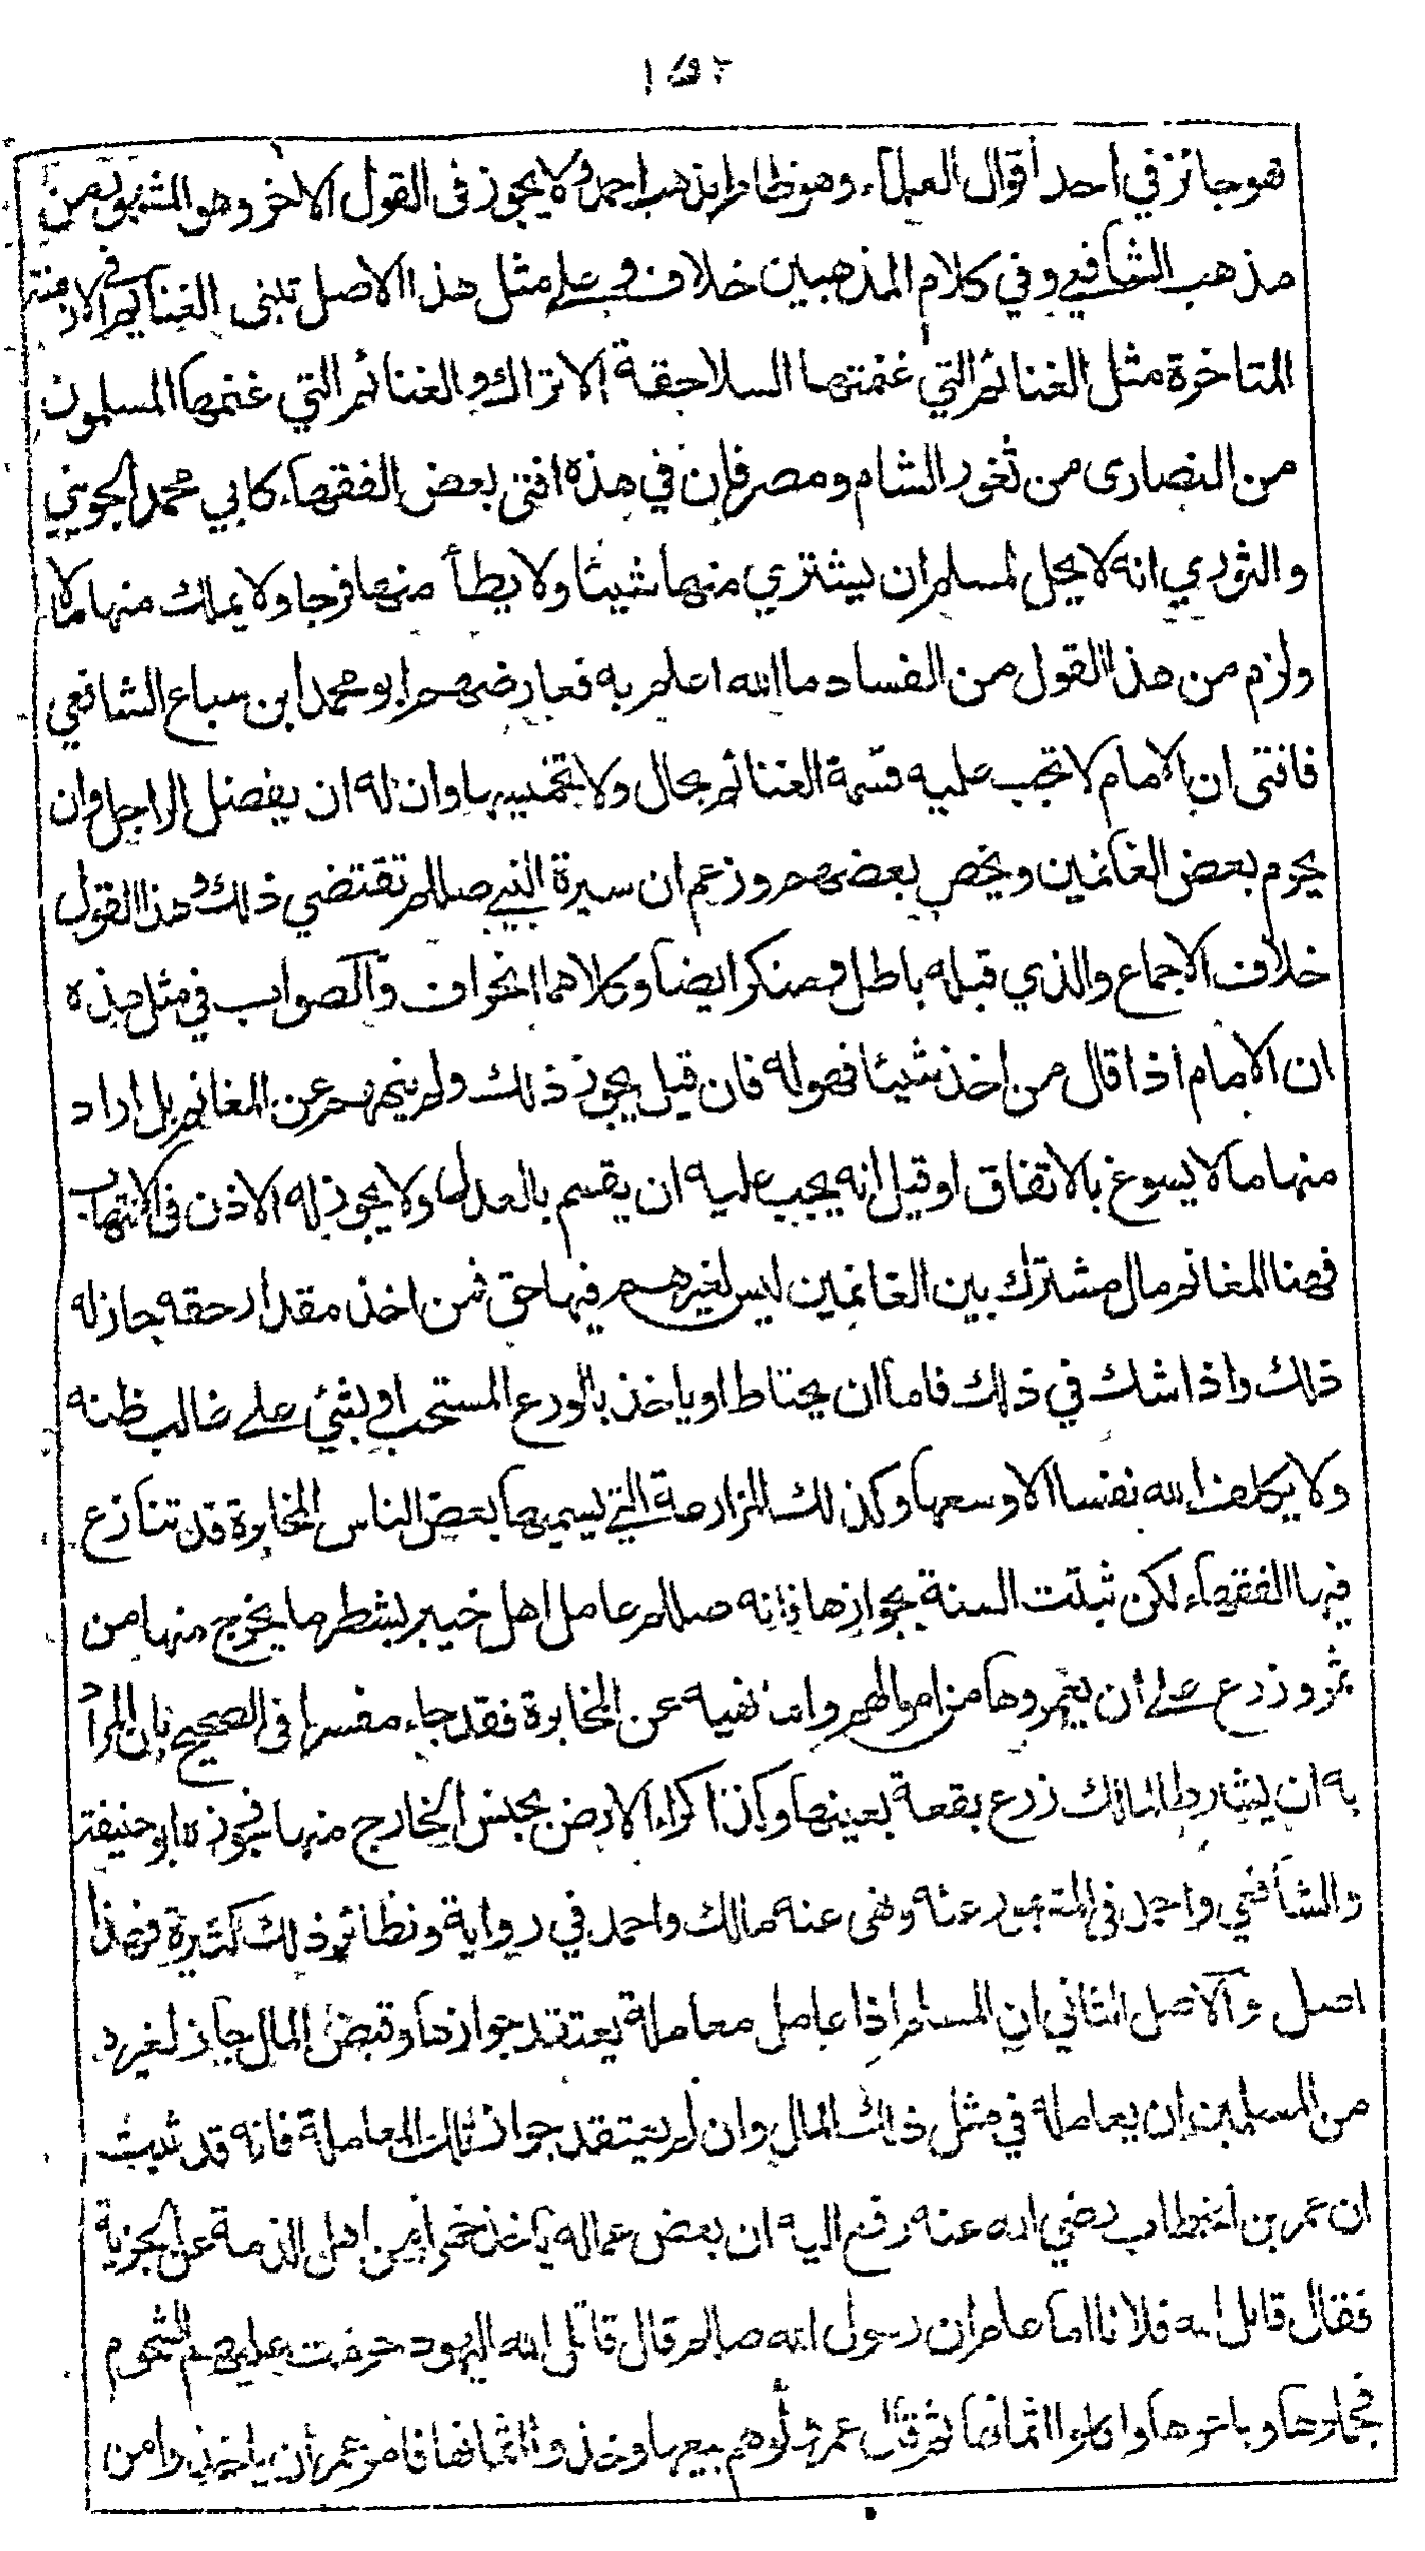 ١٥٢
هو جائز في احد اقوال العلماء وهو ظاهر مذهب احمد ولا يجوز في القول الاخر وهو المشهور من
مذهب الشافعي وفي كلام المذهبين خلاف وعلى مثل هذا الاصل تبنى الغنائم في الازمنة
المتاخرة مثل الغنائم التي غنمتها السلاجقة الاتراك والغنائم التي غنمها المسلمون
من النصارى من ثغور الشام ومصر فإن في هذه افتى بعض الفقهاء كابي محمد الجويني
والثوري انه لا يحل لمسلم ان يشتري منها شيئا ولا يطأ منها فرجا ولا يملك منها مالا
ولزم من هذا القول من الفساد ما الله اعلم به فعارضهم ابو محمد ابن سباع الشافعي
فافتى ان الامام لا تجب عليه قسمة الغنائم بحال ولا تخميسها وان له ان يفضل الراجل وان
يحرم بعض الغانمين ويخص بعضهم وزعم ان سيرة النبي صللم تقتضي ذلك وهذا القول
خلاف الاجماع والذي قبله باطل ومنكر ايضا وكلاهما انحراف والصواب في مثل هذه
ان الامام اذا قال من اخذ شيئا فهو له فان قيل يجوز ذلك ولم ينههم عن المغانم بل اراد
منها ما لا يسوغ بالاتفاق او قيل انه يجب عليه ان يقسم بالعدل ولا يجوز له الاذن في الانتهاب
فهنا المغانم مال مشترك بين الغانمين ليس لغيرهم فيها حق فمن اخذ مقدار حقه جاز له
ذلك واذا شك في ذلك فاما ان يحتاط او ياخذ بالورع المستحب او يبني على غالب ظنه
ولا يكلف الله نفسا الا وسعها وكذلك المزارعة التي يسميها بعض الناس المخابرة قد تنازع
فيها الفقهاء لكن ثبتت السنة بجوازها فانه صللم عامل اهل خيبر بشطر ما يخرج منها من
ثمر وزرع على ان يعمروها من اموالهم واما نهيه عن المخابرة فقد جاء مفسرا في الصحيح بان المراد
به ان يشارط المالك زرع بقعة بعينها وكذا كراء الارض بجنس الخارج منها فجوزه ابو حنيفة
والشافعي واحمد في المشهور عنه ونهى عنه مالك واحمد في رواية ونظائر ذلك كثيرة فهذا
اصل والاصل الثاني ان المسلم اذا عامل معاملة يعتقد جوازها وقبض المال جاز لغيره
من المسلمين ان يعامله في مثل ذلك المال وان لم يعتقد جواز تلك المعاملة فانه قد ثبت
ان عمر بن الخطاب رضي الله عنه رفع اليه ان بعض عماله يأخذ خمرا من اهل الذمة عن الجزية
فقال قاتل الله فلانا اما علم ان رسول الله صللم قال قاتل الله اليهود حرمت عليهم الشحوم
فجملوها وباعوها واكلوا اثمانها ثم قال عمر ولوهم بيعها وخذوا اثمانها فامر عمر أن ياخذوا من